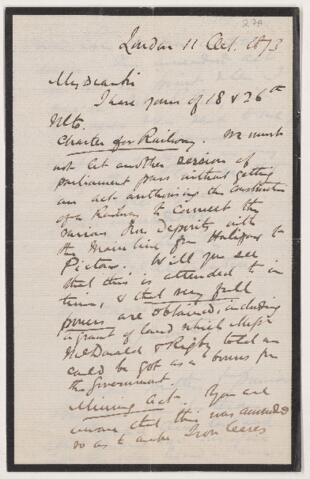 27A
London 11 Oct. 1873
My dear Sir
I have yours of 18 & 26th
ulto.
Charter for Railway. We must
not let another session of
parliament pass without getting
an act authorising the construction
of a Railway to connect the
various Iron Deposits with
the Main line from Halifax to
Pictou. Will you see
that this is attended to in
time, & that very full
powers are obtained, including
a grant of land which Messrs
McDonald & Rigby told us
could be got as a bonus from
the Government.
Mining Act. You are
aware that this was amended
so as to make Iron leases